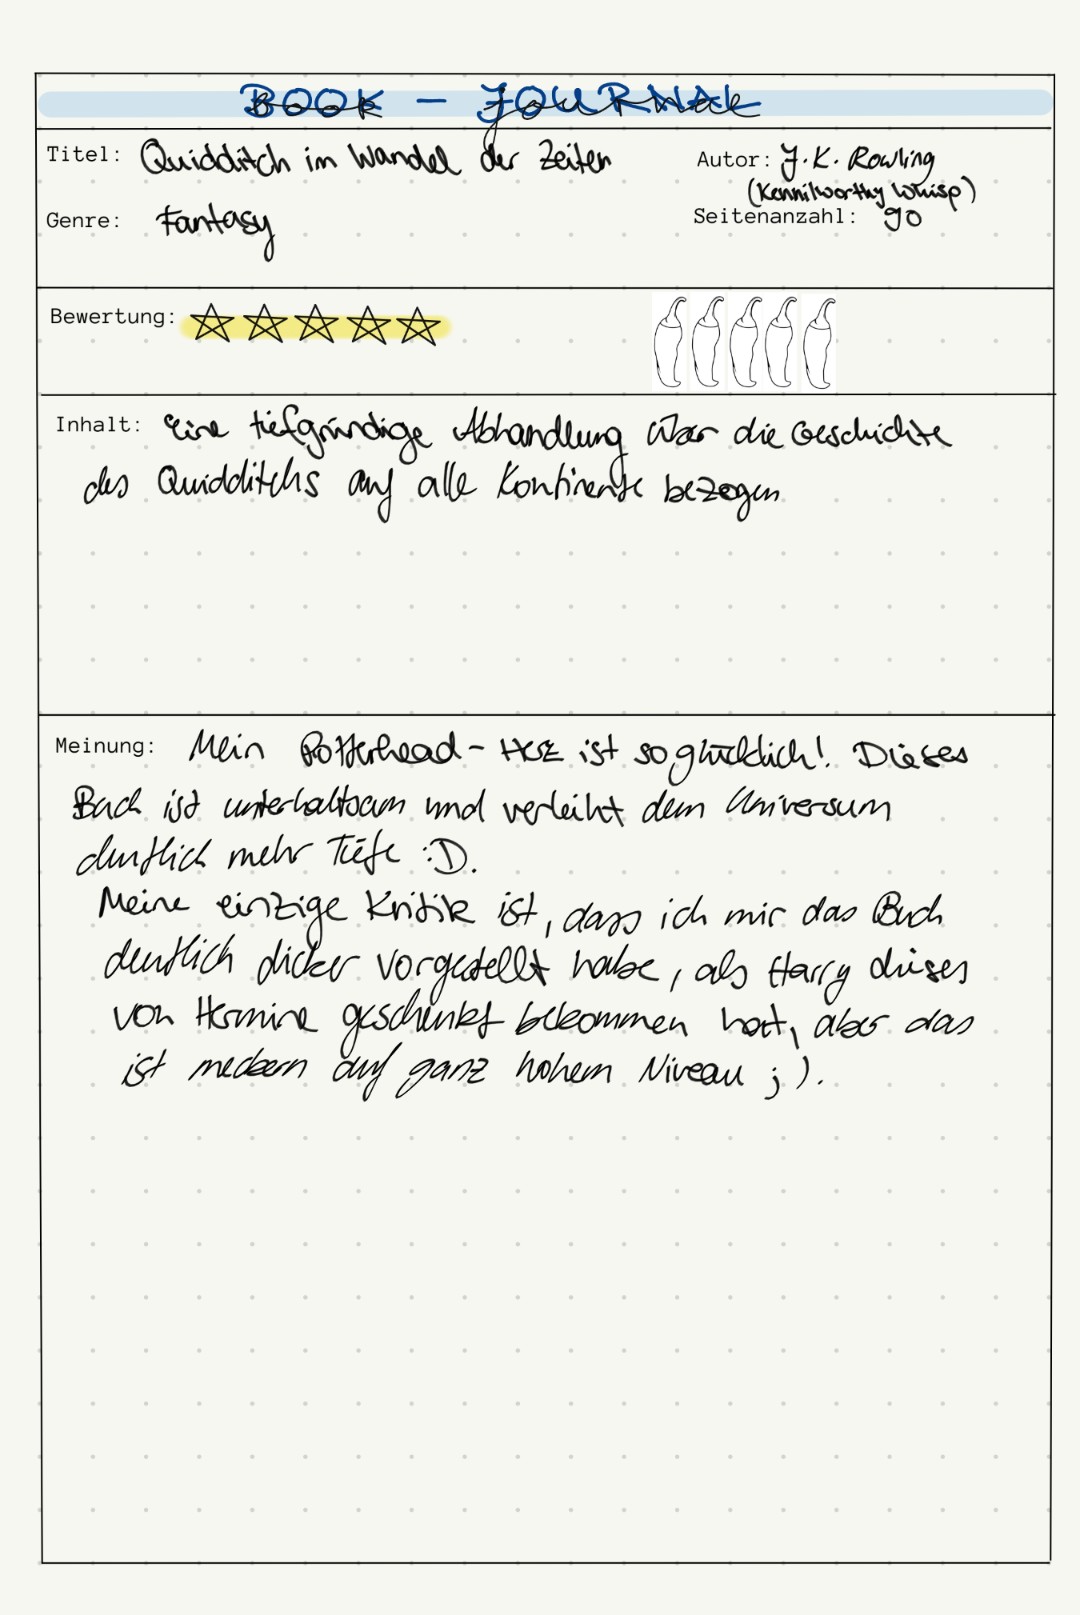 BOOK - JOURNAL
Titel: Quidditch im Wandel der Zeiten
Autor: J.K. Rowling
(Kennilworthy Whisp)
Genre: Fantasy
Seitenanzahl: 90
Bewertung:
Inhalt: Eine tiefgründige Abhandlung über die Geschichte
des Quidditchs auf alle Kontinente bezogen
Meinung: Mein Potterhead-Herz ist so glücklich! Dieses
Buch ist unterhaltsam und verleiht dem Universum
deutlich mehr Tiefe :D.
Meine einzige Kritik ist, dass ich mir das Buch
deutlich dicker vorgestellt habe, als Harry dieses
von Hermine geschenkt bekommen hat, aber das
ist meckern auf ganz hohem Niveau ;).